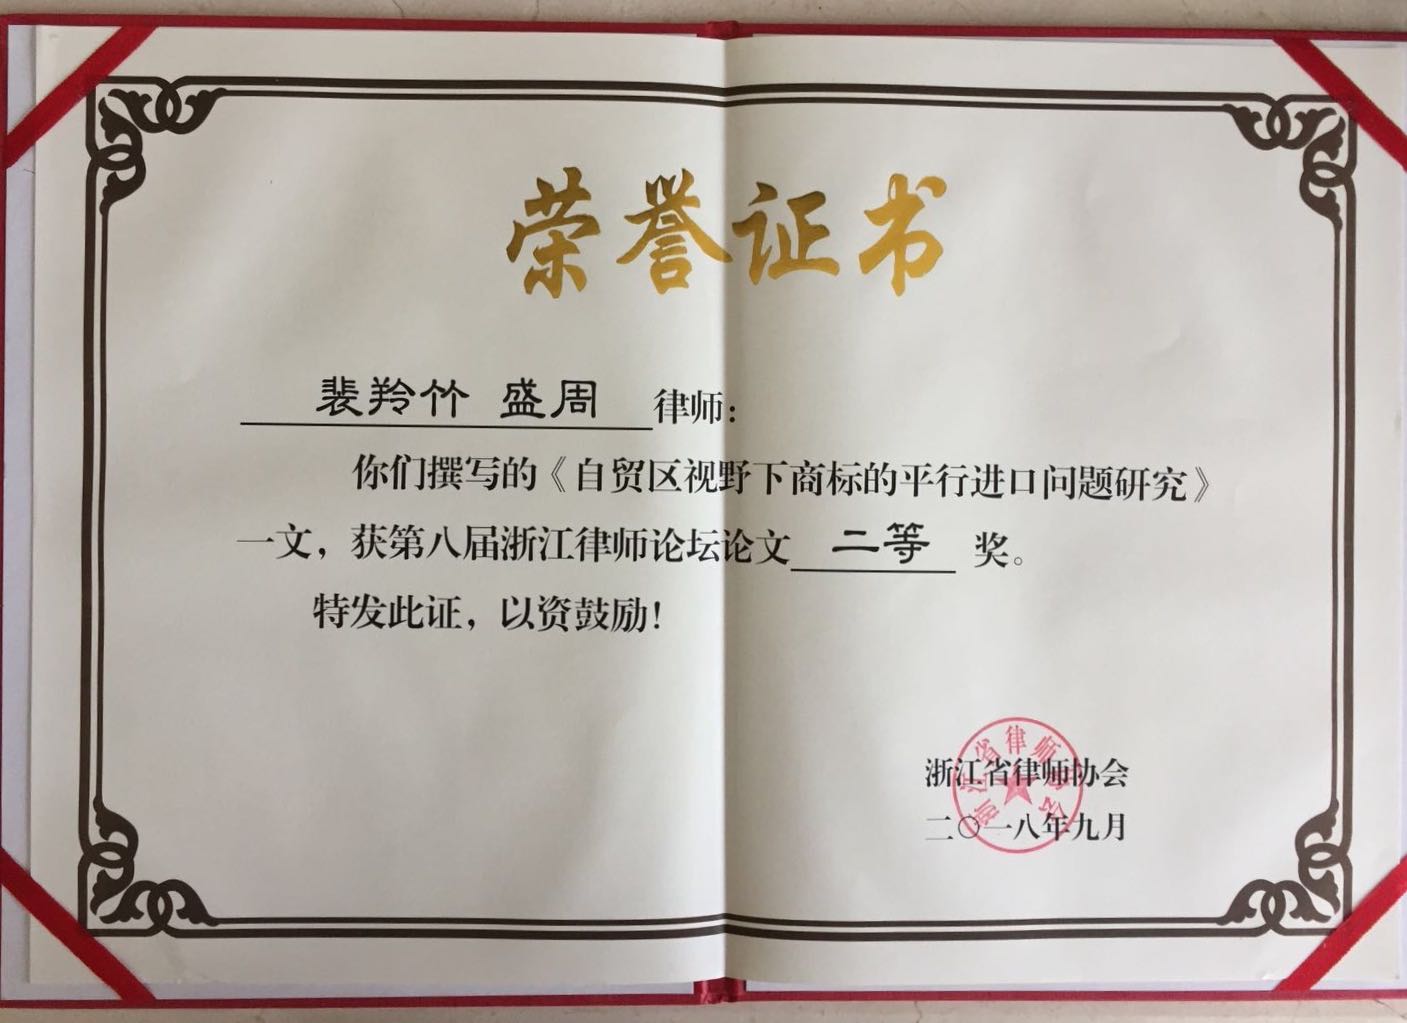 荣誉证书
裴羚竹 盛周 律师：
你们撰写的《自贸区视野下商标的平行进口问题研究》
一文，获第八届浙江律师论坛论文 二等 奖。
特发此证，以资鼓励！
浙江省律师协会
二〇一八年九月
浙江省律师协会